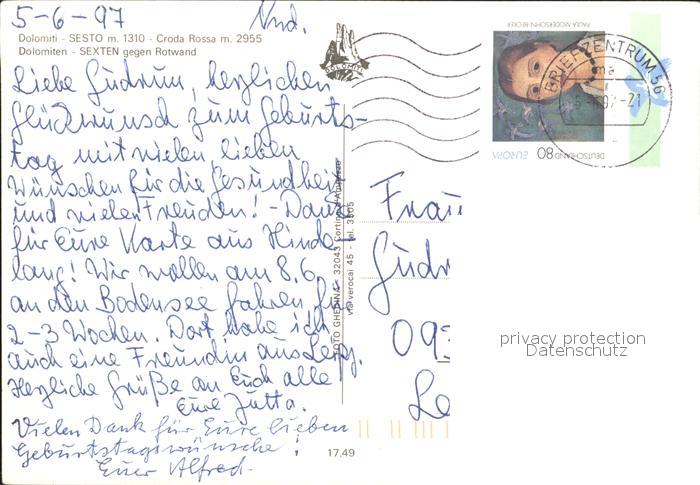 5-6-97 Nrd.
Dolomiti - SESTO m. 1310 - Croda Rossa m. 2955
Dolomiten - SEXTEN gegen Rotwand
Liebe Gudrun, herzlichen
Glückwunsch zum Geburts-
tag mit vielen lieben
Wünschen für die Gesundheit
und vielen Freuden! - Danke
für Eure Karte aus Hinde-
lang! Wir wollen am 8.6.
an den Bodensee fahren, für
2-3 Wochen. Dort habe ich
auch eine Freundin aus Leipz.
Herzliche Grüße an Euch alle
Eure Jutta.
Vielen Dank für Eure lieben
Geburtstagswünsche!
Euer Alfred.
FOTO GHEDINA - 32043 Cortina d'Ampezzo
via verocai 45 - tel. 3805
DOLOMITI
17,49
PAULA MODERSOHN-BECKER
DEUTSCHLAND
EUROPA
80
BRIEFZENTRUM 56
-21
Frau
Gudr
093
Le
privacy protection
Datenschutz